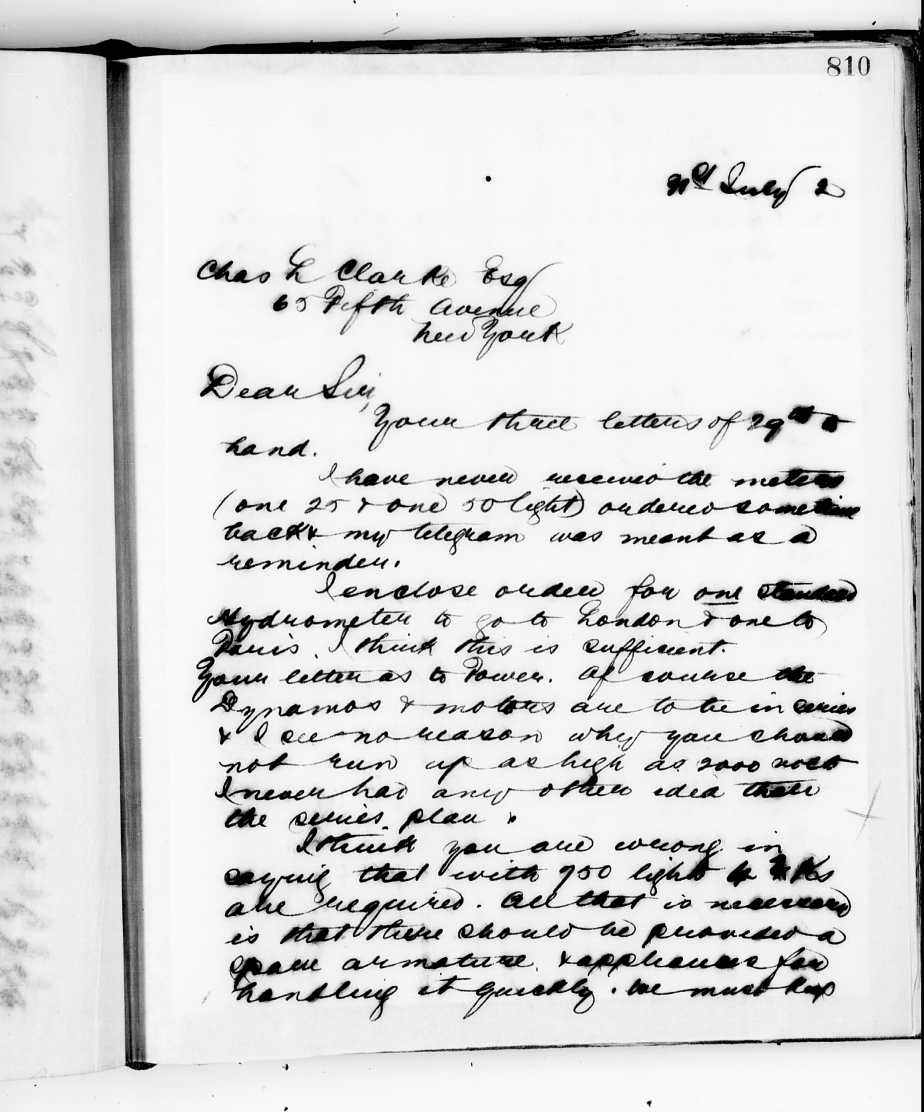 810
31st July 2
Chas L Clarke Esq
65 Fifth Avenue
New York
Dear Sir,
Your three letters of 29th to
hand.
I have never received the meters
(one 25 & one 50 light) ordered sometime
back & my telegram was meant as a
reminder.
I enclose order for one standard
Hydrometer to go to London & one to
Paris. I think this is sufficient.
Your letter as to Power. Of course the
Dynamos & motors are to be in series
& I see no reason why you should
not run up as high as 2000 volts
I never had any other idea than
the series plan.
I think you are wrong in
saying that with 750 lights Ks
are required. All that is necessary
is that there should be provided a
spare armature & appliances for
handling it quickly. We must keep